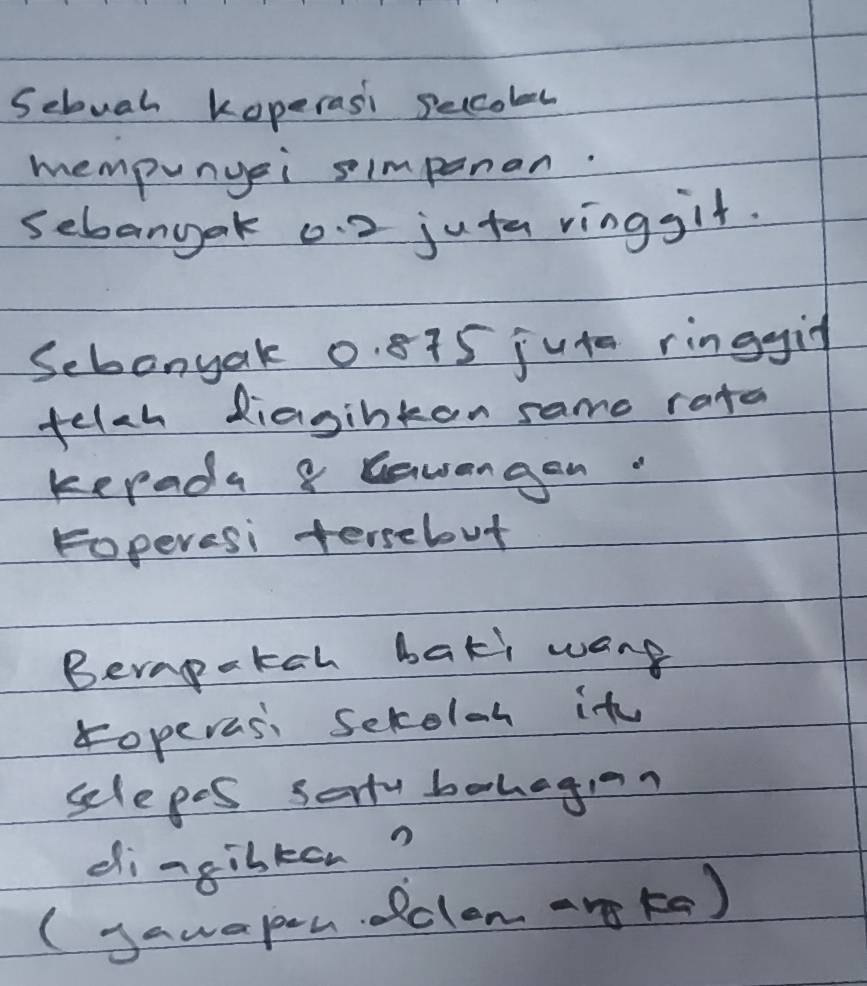 Sebuah koperasi sekolah
mempunyai simpanan.
Sebanyak 0.2 juta ringgit.
Sebanyak 0.875 juta ringgit
telah diagihkan sama rata
kepada 8 cawangan.
Koperasi tersebut
Berapakah baki wang
koperasi sekolah itu
selepas satu bahagian
diagihkan?
(jawapan dalam angka)